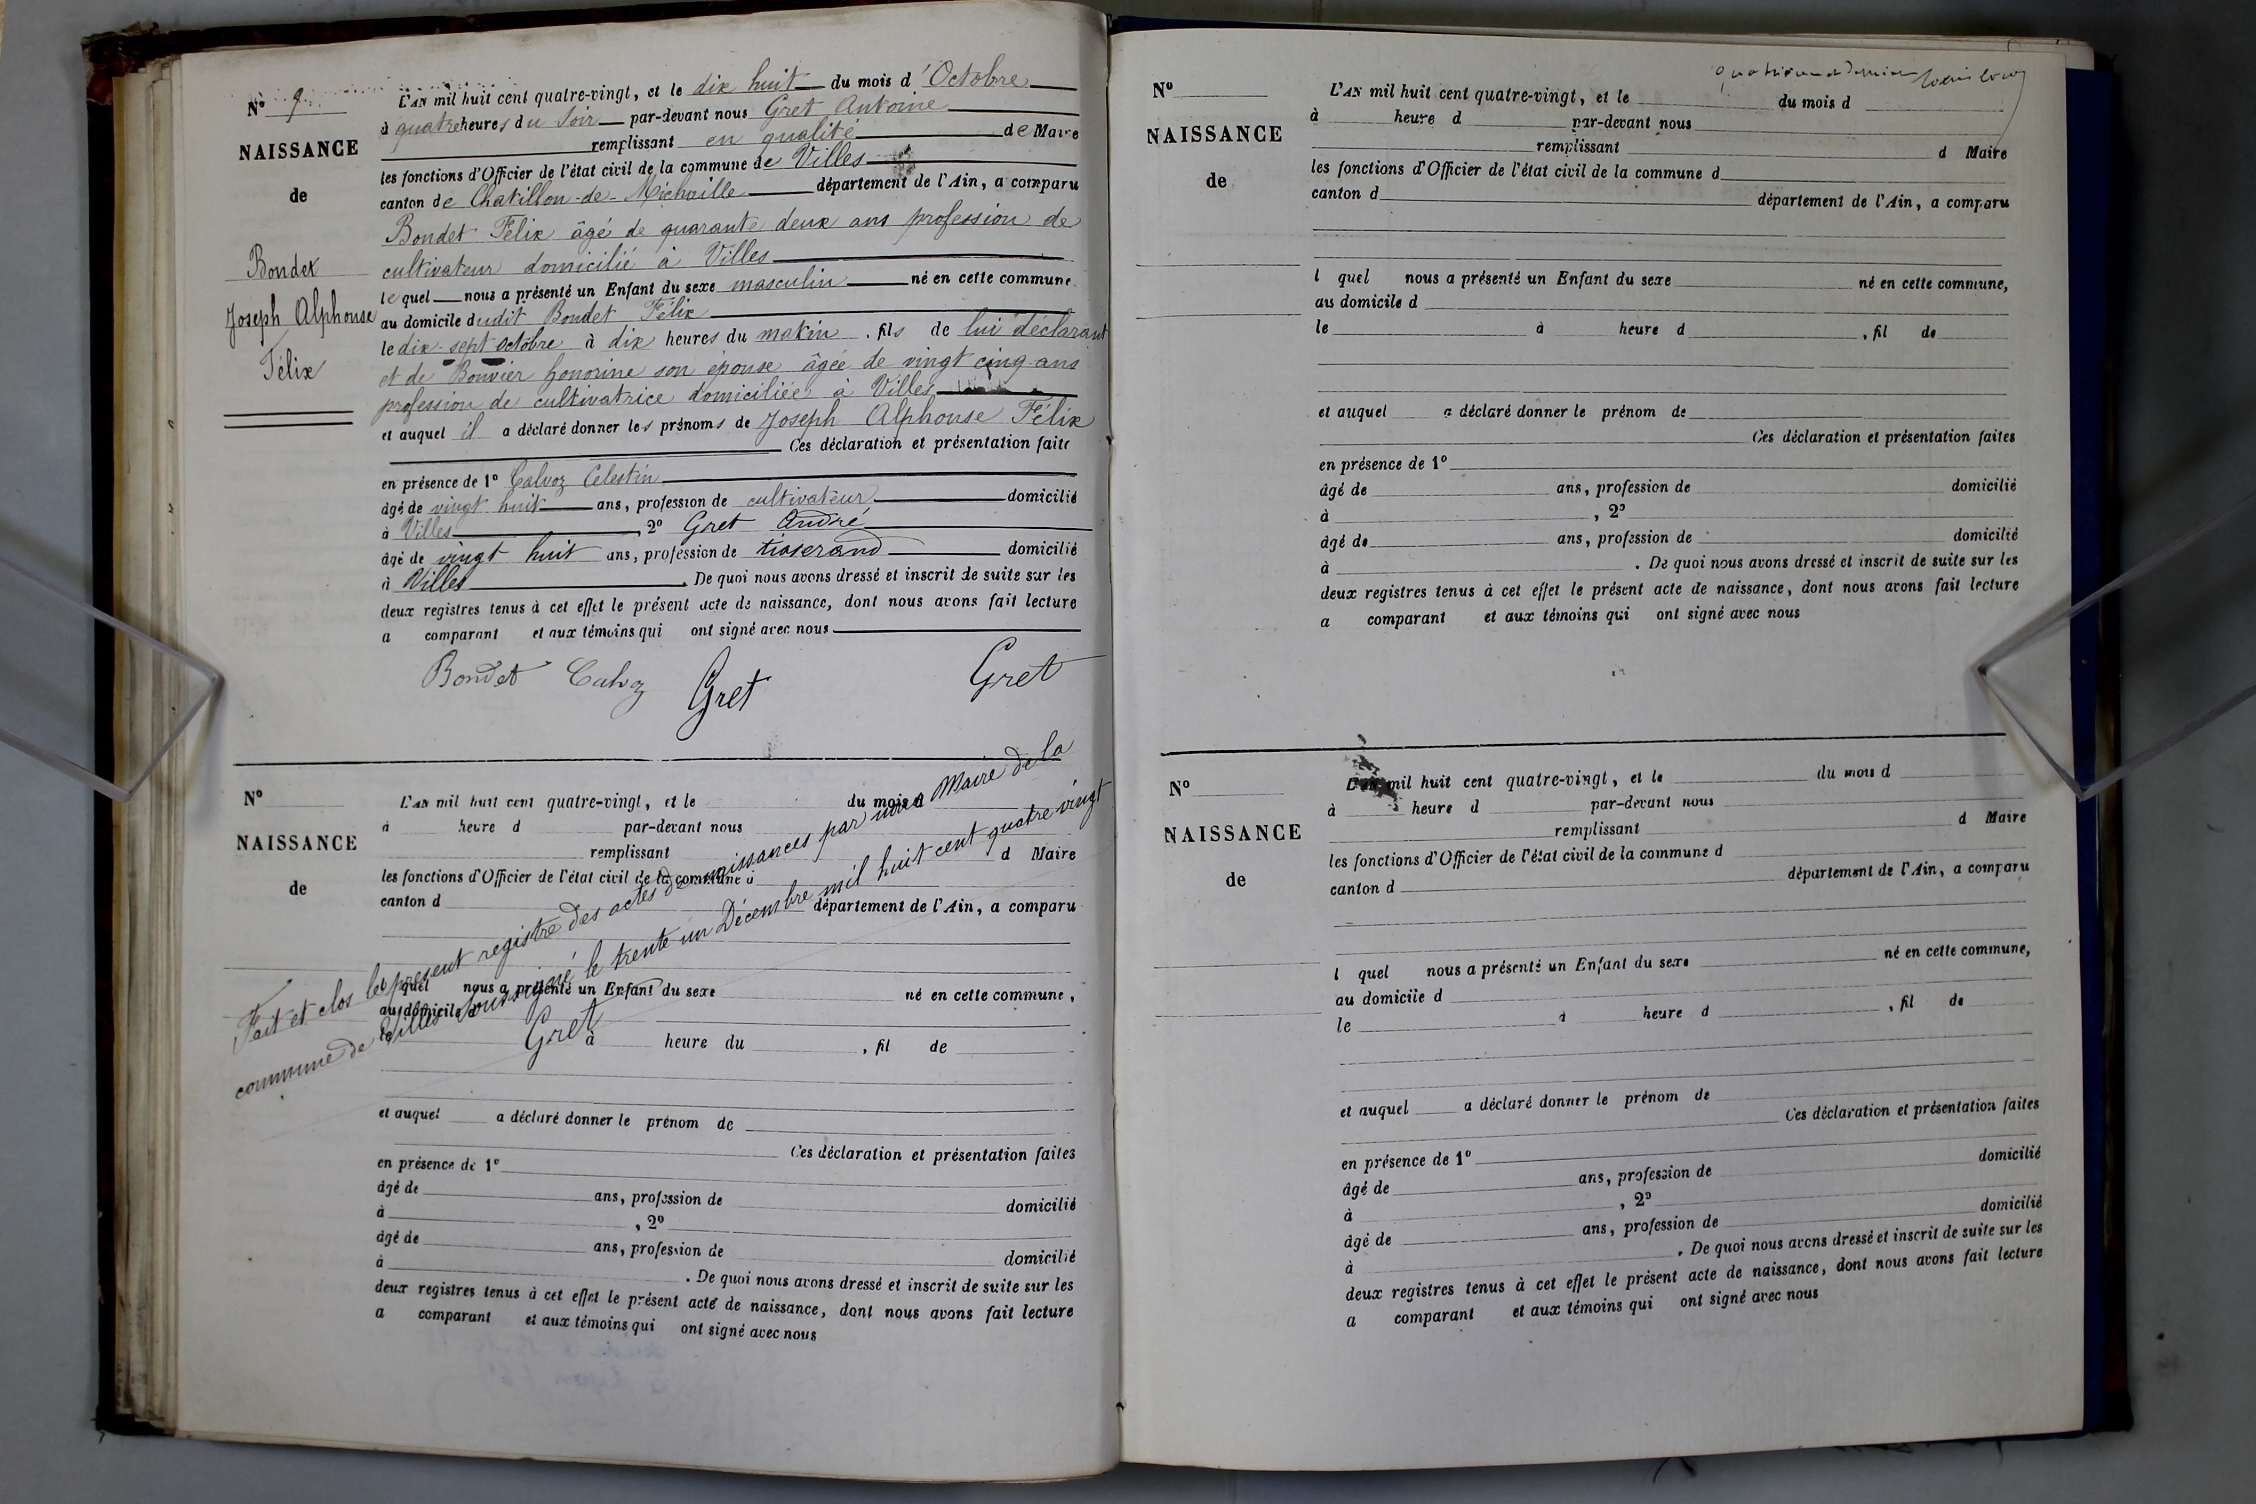 Nº 9
NAISSANCE
de
Bondet
Joseph Alphonse
Félix
L'AN mil huit cent quatre-vingt, et le dix huit du mois d'Octobre
à quatre heures du Soir par-devant nous Gret Antoine
remplissant en qualité de Maire
les fonctions d'Officier de l'état civil de la commune de Villes
canton de Chatillon-de-Michaille département de l'Ain, a comparu
Bondet Félix âgé de quarante deux ans profession de
cultivateur domicilié à Villes
lequel nous a présenté un Enfant du sexe masculin né en cette commune
au domicile dudit Bondet Félix
le dix-sept Octobre à dix heures du matin, fils de lui déclarant
et de Bouvier honorine son épouse âgée de vingt cinq ans
profession de cultivatrice domiciliée à Villes
et auquel il a déclaré donner les prénoms de Joseph Alphonse Félix
Ces déclaration et présentation faite
en présence de 1º Calvoz Célestin
âgé de vingt huit ans, profession de cultivateur domicilié
à Villes, 2º Gret André
âgé de vingt huit ans, profession de tisserand domicilié
à Villes. De quoi nous avons dressé et inscrit de suite sur les
deux registres tenus à cet effet le présent acte de naissance, dont nous avons fait lecture
a comparant et aux témoins qui ont signé avec nous
Bondet Calvoz Gret Gret
Nº
NAISSANCE
de
L'AN mil huit cent quatre-vingt, et le du mois d
à heure d par-devant nous
remplissant d Maire
les fonctions d'Officier de l'état civil de la commune d
canton d département de l'Ain, a comparu
l quel nous a présenté un Enfant du sexe né en cette commune,
au domicile d
le à heure du , fil de
et auquel a déclaré donner le prénom de
Ces déclaration et présentation faites
en présence de 1º
âgé de ans, profession de domicilié
à , 2º
âgé de ans, profession de domicilié
à . De quoi nous avons dressé et inscrit de suite sur les
deux registres tenus à cet effet le présent acte de naissance, dont nous avons fait lecture
a comparant et aux témoins qui ont signé avec nous
Fait et clos le présent registre des actes de naissances par nous Maire de la
commune de Villes soussigné le trente un Décembre mil huit cent quatre vingt
Gret
Nº
NAISSANCE
de
L'AN mil huit cent quatre-vingt, et le du mois d
à heure d par-devant nous
remplissant d Maire
les fonctions d'Officier de l'état civil de la commune d
canton d département de l'Ain, a comparu
l quel nous a présenté un Enfant du sexe né en cette commune,
au domicile d
le à heure d , fil de
et auquel a déclaré donner le prénom de
Ces déclaration et présentation faites
en présence de 1º
âgé de ans, profession de domicilié
à , 2º
âgé de ans, profession de domicilié
à . De quoi nous avons dressé et inscrit de suite sur les
deux registres tenus à cet effet le présent acte de naissance, dont nous avons fait lecture
a comparant et aux témoins qui ont signé avec nous
Nº
NAISSANCE
de
L'AN mil huit cent quatre-vingt, et le du mois d
à heure d par-devant nous
remplissant d Maire
les fonctions d'Officier de l'état civil de la commune d
canton d département de l'Ain, a comparu
l quel nous a présenté un Enfant du sexe né en cette commune,
au domicile d
le à heure d , fil de
et auquel a déclaré donner le prénom de
Ces déclaration et présentation faites
en présence de 1º
âgé de ans, profession de domicilié
à , 2º
âgé de ans, profession de domicilié
à . De quoi nous avons dressé et inscrit de suite sur les
deux registres tenus à cet effet le présent acte de naissance, dont nous avons fait lecture
a comparant et aux témoins qui ont signé avec nous